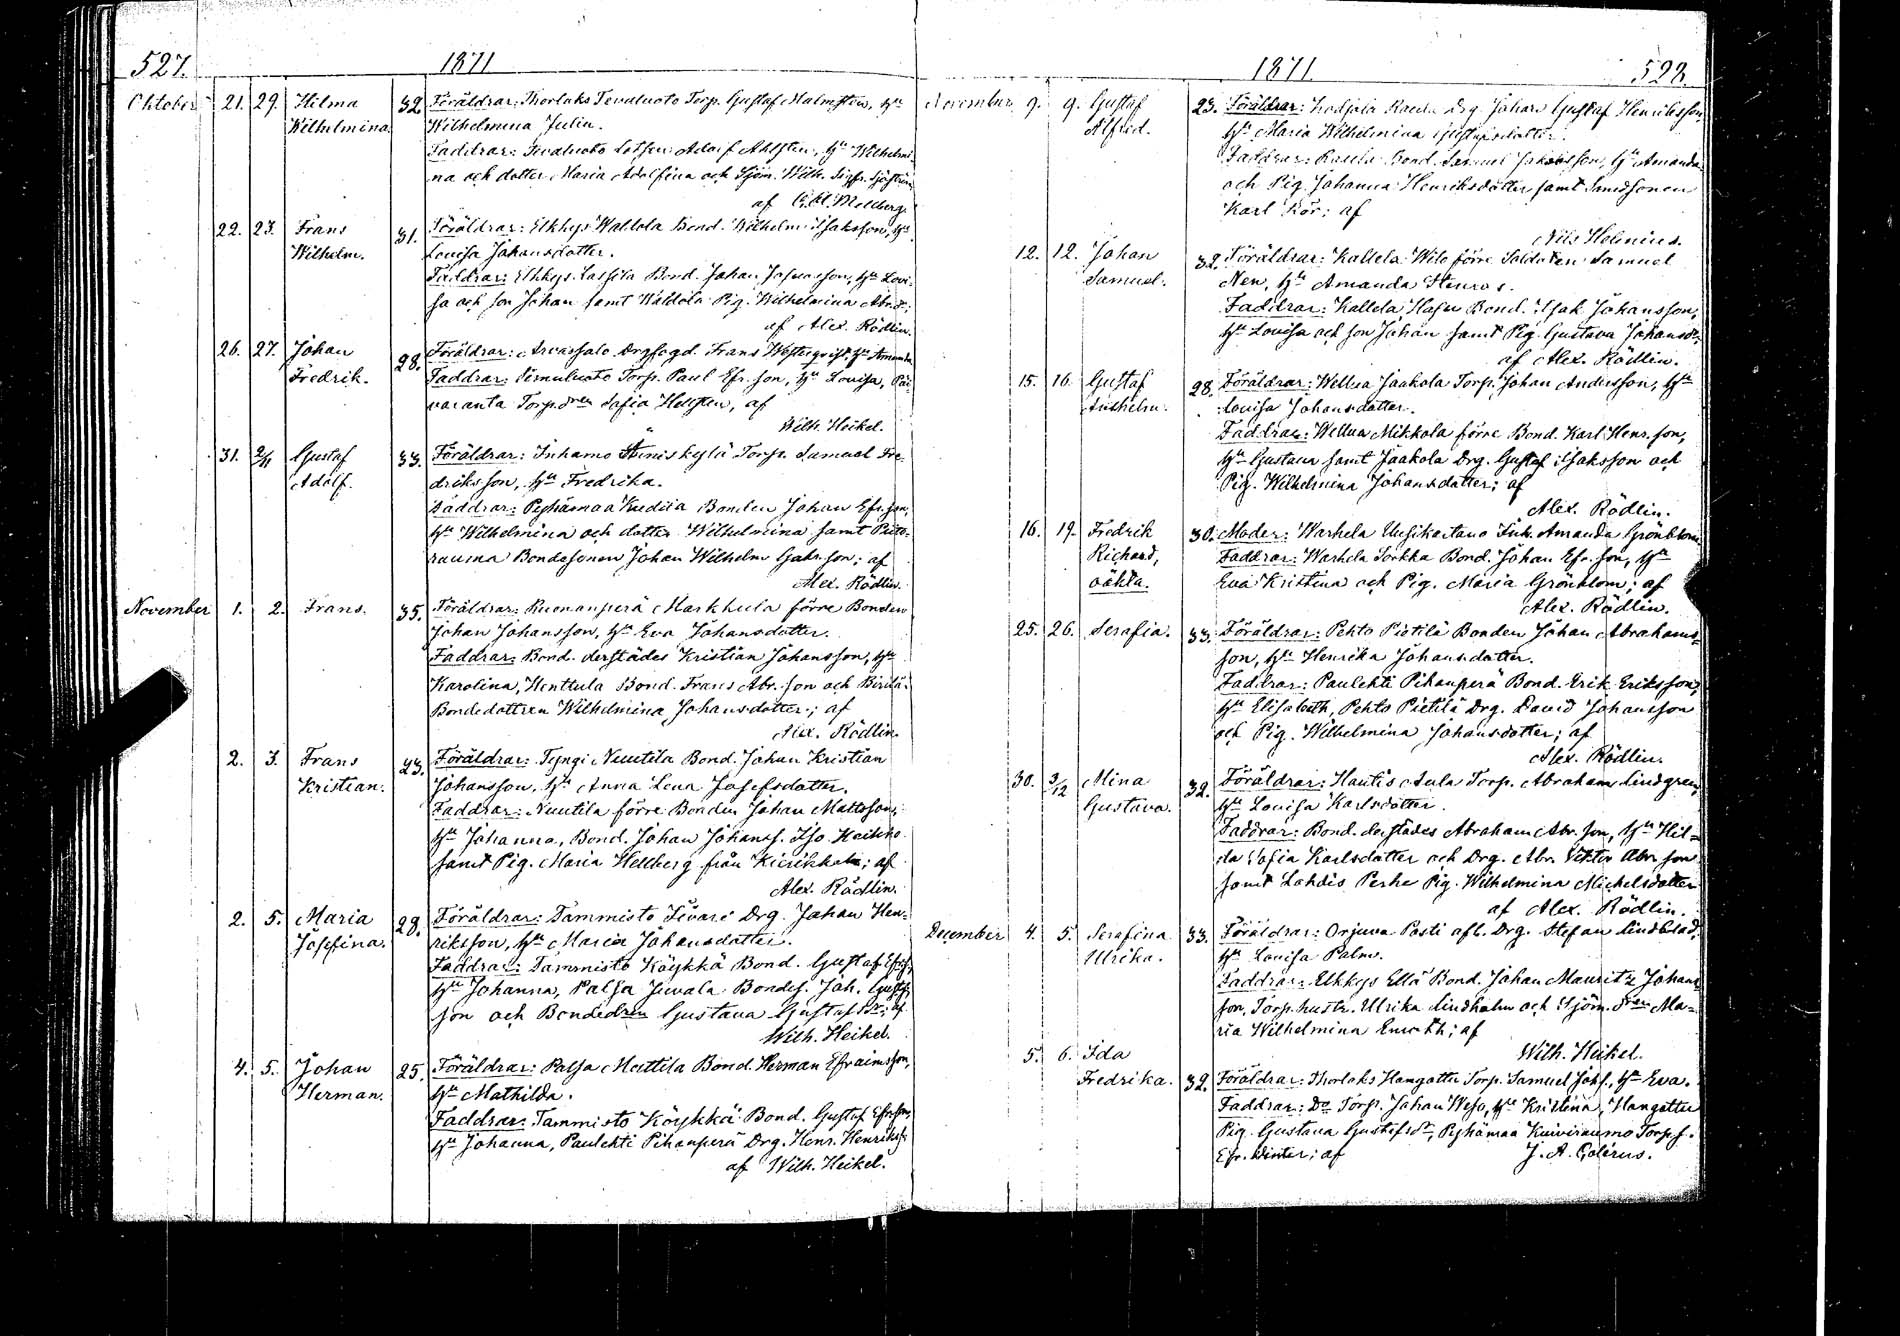 527. 1871
Oktober 21. 29. Hilma 32. Föräldrar: Thorlaks Tevaluoto Torp. Gustaf Malmsten, hu
Wilhelmina. Wilhelmina Julin.
Faddrar: Tevaluoto Lotsen Adolf Ahlsten, hu Wilhelmi-
na och dotter Maria Adolfina och Sjöm. Wilh. Sjöström
af C. A. Mellberg.
22. 23. Frans 31. Föräldrar: Elkkys Waldola Bond. Wilhelm Isaksson, hu
Wilhelm. Lovisa Johansdotter.
Faddrar: Elkkys Lassila Bond. Johan Josuasson, hu Lovi-
sa och son Johan samt Waldola Pig. Wilhelmina Abrd:
af Alex. Rödlin.
26. 27. Johan 28. Föräldrar: Arvassalo Drgfogd. Frans Westerqvist, hu Amanda
Fredrik. Faddrar: Torp. Paul Efr. son, hu Lovisa,
varanta Torp.dren Safia Hellsten, af
Wilh. Heikel.
31. 2/11 Gustaf 33. Föräldrar: Inhamo Äyniskylä Torp. Samuel Fre-
Adolf. driksson, hu Fredrika.
Faddrar: Pyhämaa Kredila Bonden Johan Efr. son,
hu Wilhelmina och dotter Wilhelmina samt Pito-
rauma Bondesonen Johan Wilhelm Gabr. son; af
Alex. Rödlin.
November 1. 2. Frans. 35. Föräldrar: Ruonanperä Markkula förre Bonden
Johan Johansson, hu Eva Johansdotter.
Faddrar: Bond. derstädes Kristian Johansson, hu
Karolina, Henttula Bond. Frans Abr. son och
Bondedottren Wilhelmina Johansdotter; af
Alex. Rödlin.
2. 3. Frans 23. Föräldrar: Tyngi Nuutila Bond. Johan Kristian
Kristian. Johansson, hu Anna Lena Josefsdotter.
Faddrar: Nuutila förre Bonden Johan Mattsson,
hu Johanna, Bond. Johan Johanss. Iso Heikko
samt Pig. Maria Hellberg från Kierikkala; af
Alex. Rödlin.
2. 5. Maria 28. Föräldrar: Tammisto Iivari Drg. Johan Hen-
Josefina. riksson, hu Maria Johansdotter.
Faddrar: Tammisto Köykkä Bond. Gustaf Efrss,
hu Johanna, Palsa Juvala Bondes. Joh. Gustafs-
son och Bondedren Gustava Gustafsdr; af
Wilh. Heikel.
4. 5. Johan 25. Föräldrar: Palsa Mattila Bond. Herman Efraimsson,
Herman. hu Mathilda.
Faddrar: Tammisto Köykkä Bond. Gustaf Efr. son,
hu Johanna, Paulekti Pihanperä Drg. Henr. Henrikss.
af Wilh. Heikel.
1871 528.
November 9. 9. Gustaf 23. Föräldrar: Rauda Drg. Johan Gustaf Henriksson,
Alfred. hu Maria Wilhelmina Gustafsdotter.
Faddrar: Bond. Samuel Jakobsson, hu Amanda
och Pig. Johanna Henriksdotter samt
Karl Rör; af
Nils Helenius.
12. 12. Johan 32. Föräldrar: Kallela Wilo förre Soldaten Samuel
Samuel. Nen, hu Amanda Henrs.
Faddrar: Kallela Haju Bond. Isak Johansson,
hu Lovisa och son Johan samt Pig. Gustava Johansdr,
af Alex. Rödlin.
15. 16. Gustaf 28. Föräldrar: Wellua Jaakola Torp. Johan Andersson, hu
Anshelm. Lovisa Johansdotter.
Faddrar: Wellua Mikkola förre Bond. Karl Henr. son,
hu Gustava samt Jaakola Drg. Gustaf Isaksson och
Pig. Wilhelmina Johansdotter; af
Alex. Rödlin.
16. 19. Fredrik 30. Moder: Warhela Uusikartano Inh. Amanda Grönblom
Richard, Faddrar: Warhela Sorkka Bond. Johan Efr. son, hu
oäkta. Eva Kristina och Pig. Maria Grönblom; af
Alex. Rödlin.
25. 26. Serafia. 33. Föräldrar: Pehto Pietilä Bonden Johan Abrahams-
son, hu Henrika Johansdotter.
Faddrar: Paulekti Pihanperä Bond. Erik Eriksson,
hu Elisabeth, Pehto Pietilä Drg. David Johansson
och Pig. Wilhelmina Johansdotter; af
Alex. Rödlin.
30. 3/12 Mina 32. Föräldrar: Hautis Aula Torp. Abraham Lindgren,
Gustava. hu Lovisa Karlsdotter.
Faddrar: Bond. derstädes Abraham Abr. son, hu Hil-
da Sofia Karlsdotter och Drg. Abr. Viktor Abr. son
samt Lahdis Perhe Pig. Wilhelmina Michelsdotter
af Alex. Rödlin.
December 4. 5. Serafina 33. Föräldrar: Orjuva Pasti afl. Drg. Stefan Lindblad,
Ulrika. hu Lovisa Palm.
Faddrar: Elkkys Ellä Bond. Johan Mauritz Johans-
son, Torp. hustr. Ulrika Lindholm och Sjöm. dren Ma-
ria Wilhelmina Eneroth; af
Wilh. Heikel.
5. 6. Ida
Fredrika. 32. Föräldrar: Thorlaks Hangattu Torp. Samuel Johs., hu Eva.
Faddrar: Do Torp. Johan Weso, hu Kristina, Hangattu
Pig. Gustava Gustafsdr, Pyhämaa Kuivirauma Torp. s.
Efr. Winter; af J. A. Colérus.